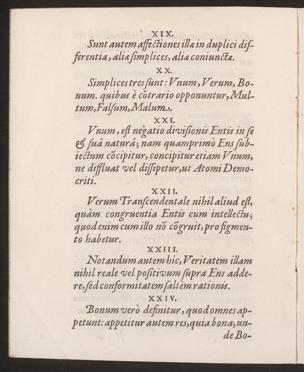 XIX.
Sunt autem affectiones illæ in duplici dif-
ferentia, aliæ simplices, aliæ coniunctæ.
XX.
Simplices tres sunt: Vnum, Verum, Bo-
num. quibus è cōtrario opponuntur, Mul-
tum, Falsum, Malum.
XXI.
Vnum, est negatio divisionis Entis in se
& suâ naturâ; nam quamprimò Ens sub-
iectum cōcipitur, concipitur etiam Vnum,
ne diffluat vel dissipetur, ut Atomi Demo-
criti.
XXII.
Verum Transcendentale nihil aliud est,
quàm congruentia Entis cum intellectu;
quod enim cum illo nō cōgruit, pro figmen-
to habetur.
XXIII.
Notandum autem hic, Veritatem illam
nihil reale vel positivum supra Ens adde-
re, sed conformitatem saliem rationis.
XXIV.
Bonum verò definitur, quod omnes ap-
petunt: appetitur autem res, quia bona; un-
de Bo-